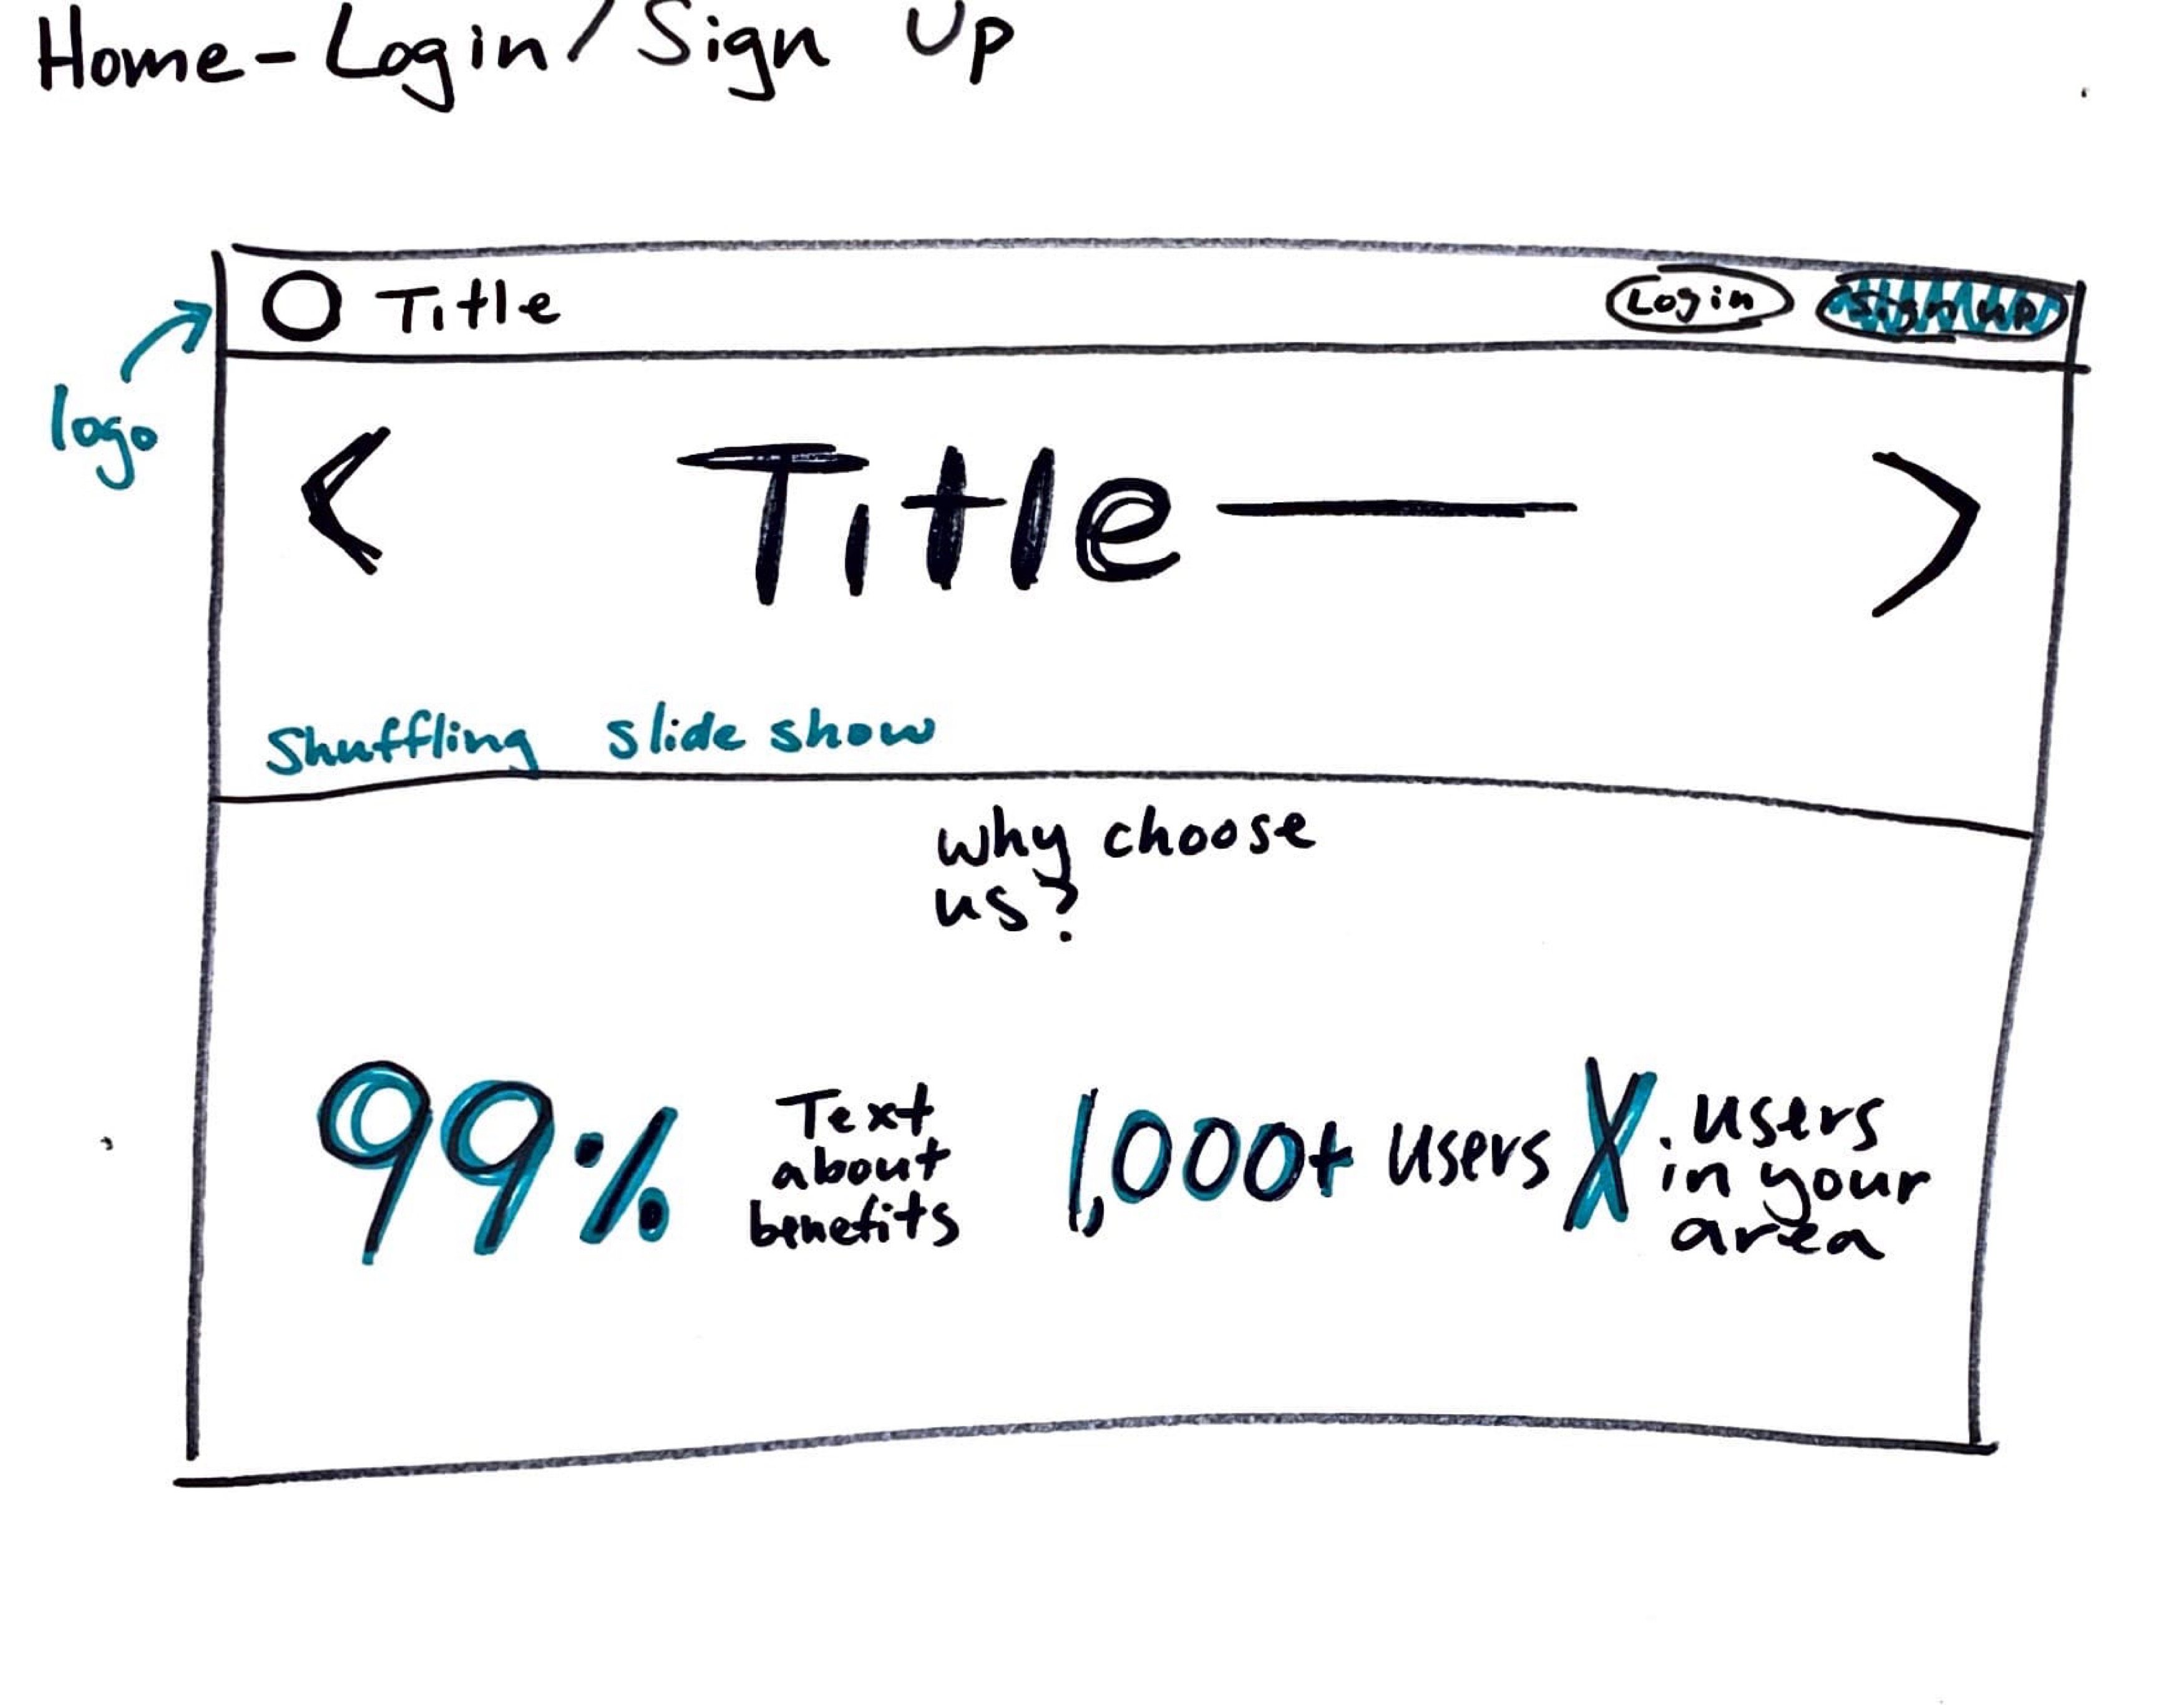 Home - Login / Sign Up
Title
Login
Sign up
logo
< Title >
Shuffling slide show
why choose
us?
99%
Text
about
benefits
1,000+ users
X users
in your
area